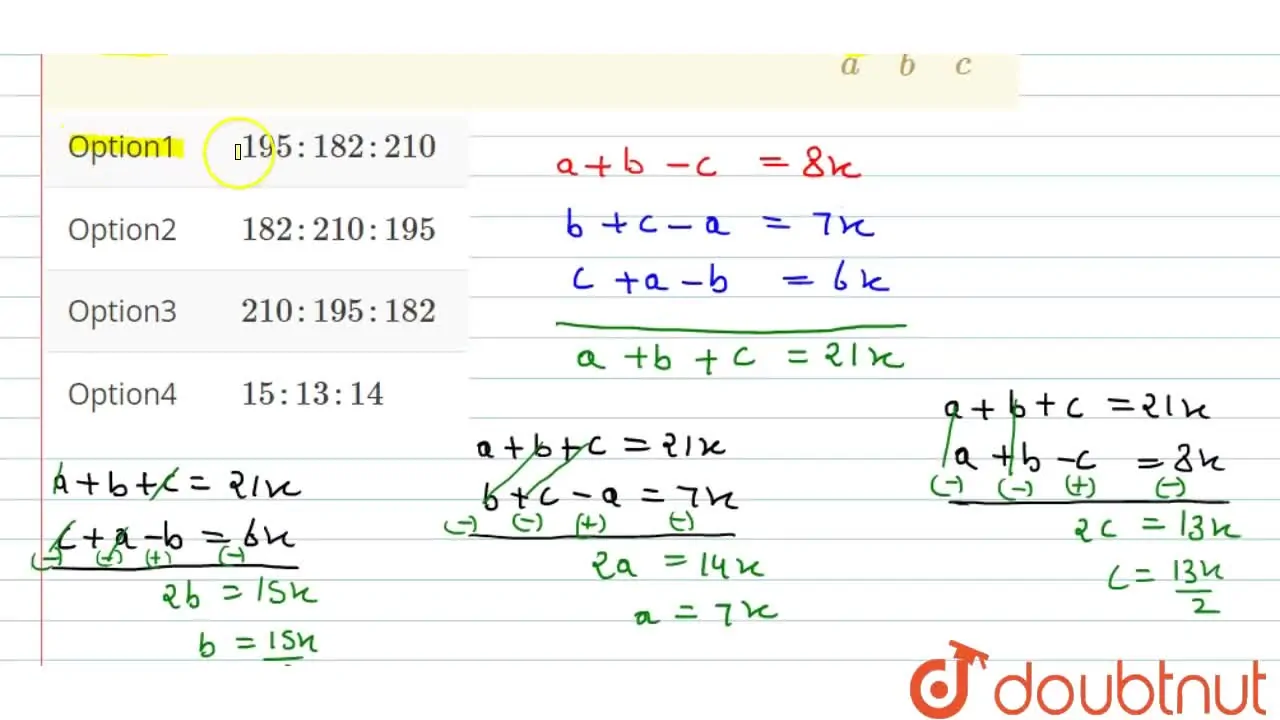 a b c
Option1 195 : 182 : 210
Option2 182 : 210 : 195
Option3 210 : 195 : 182
Option4 15 : 13 : 14
a + b - c = 8x
b + c - a = 7x
c + a - b = 6x
a + b + c = 21x
a + b + c = 21x
c + a - b = 6x
(-) (-) (+) (-)
2b = 15x
b = 15x
a + b + c = 21x
b + c - a = 7x
(-) (-) (+) (-)
2a = 14x
a = 7x
a + b + c = 21x
a + b - c = 8x
(-) (-) (+) (-)
2c = 13x
c = 13x/2
doubtnut